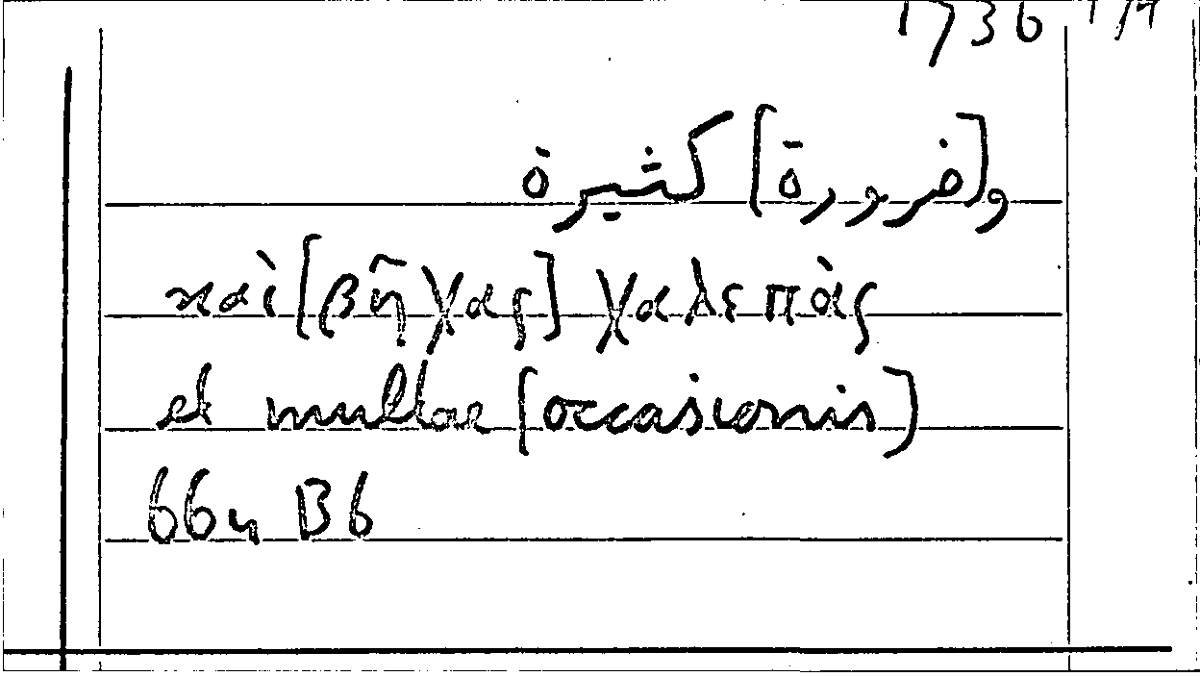 1736
و[ضرورة] كثيرة
καὶ [βῆχας] χαλεπὰς
et multae [occasionis]
664 B6